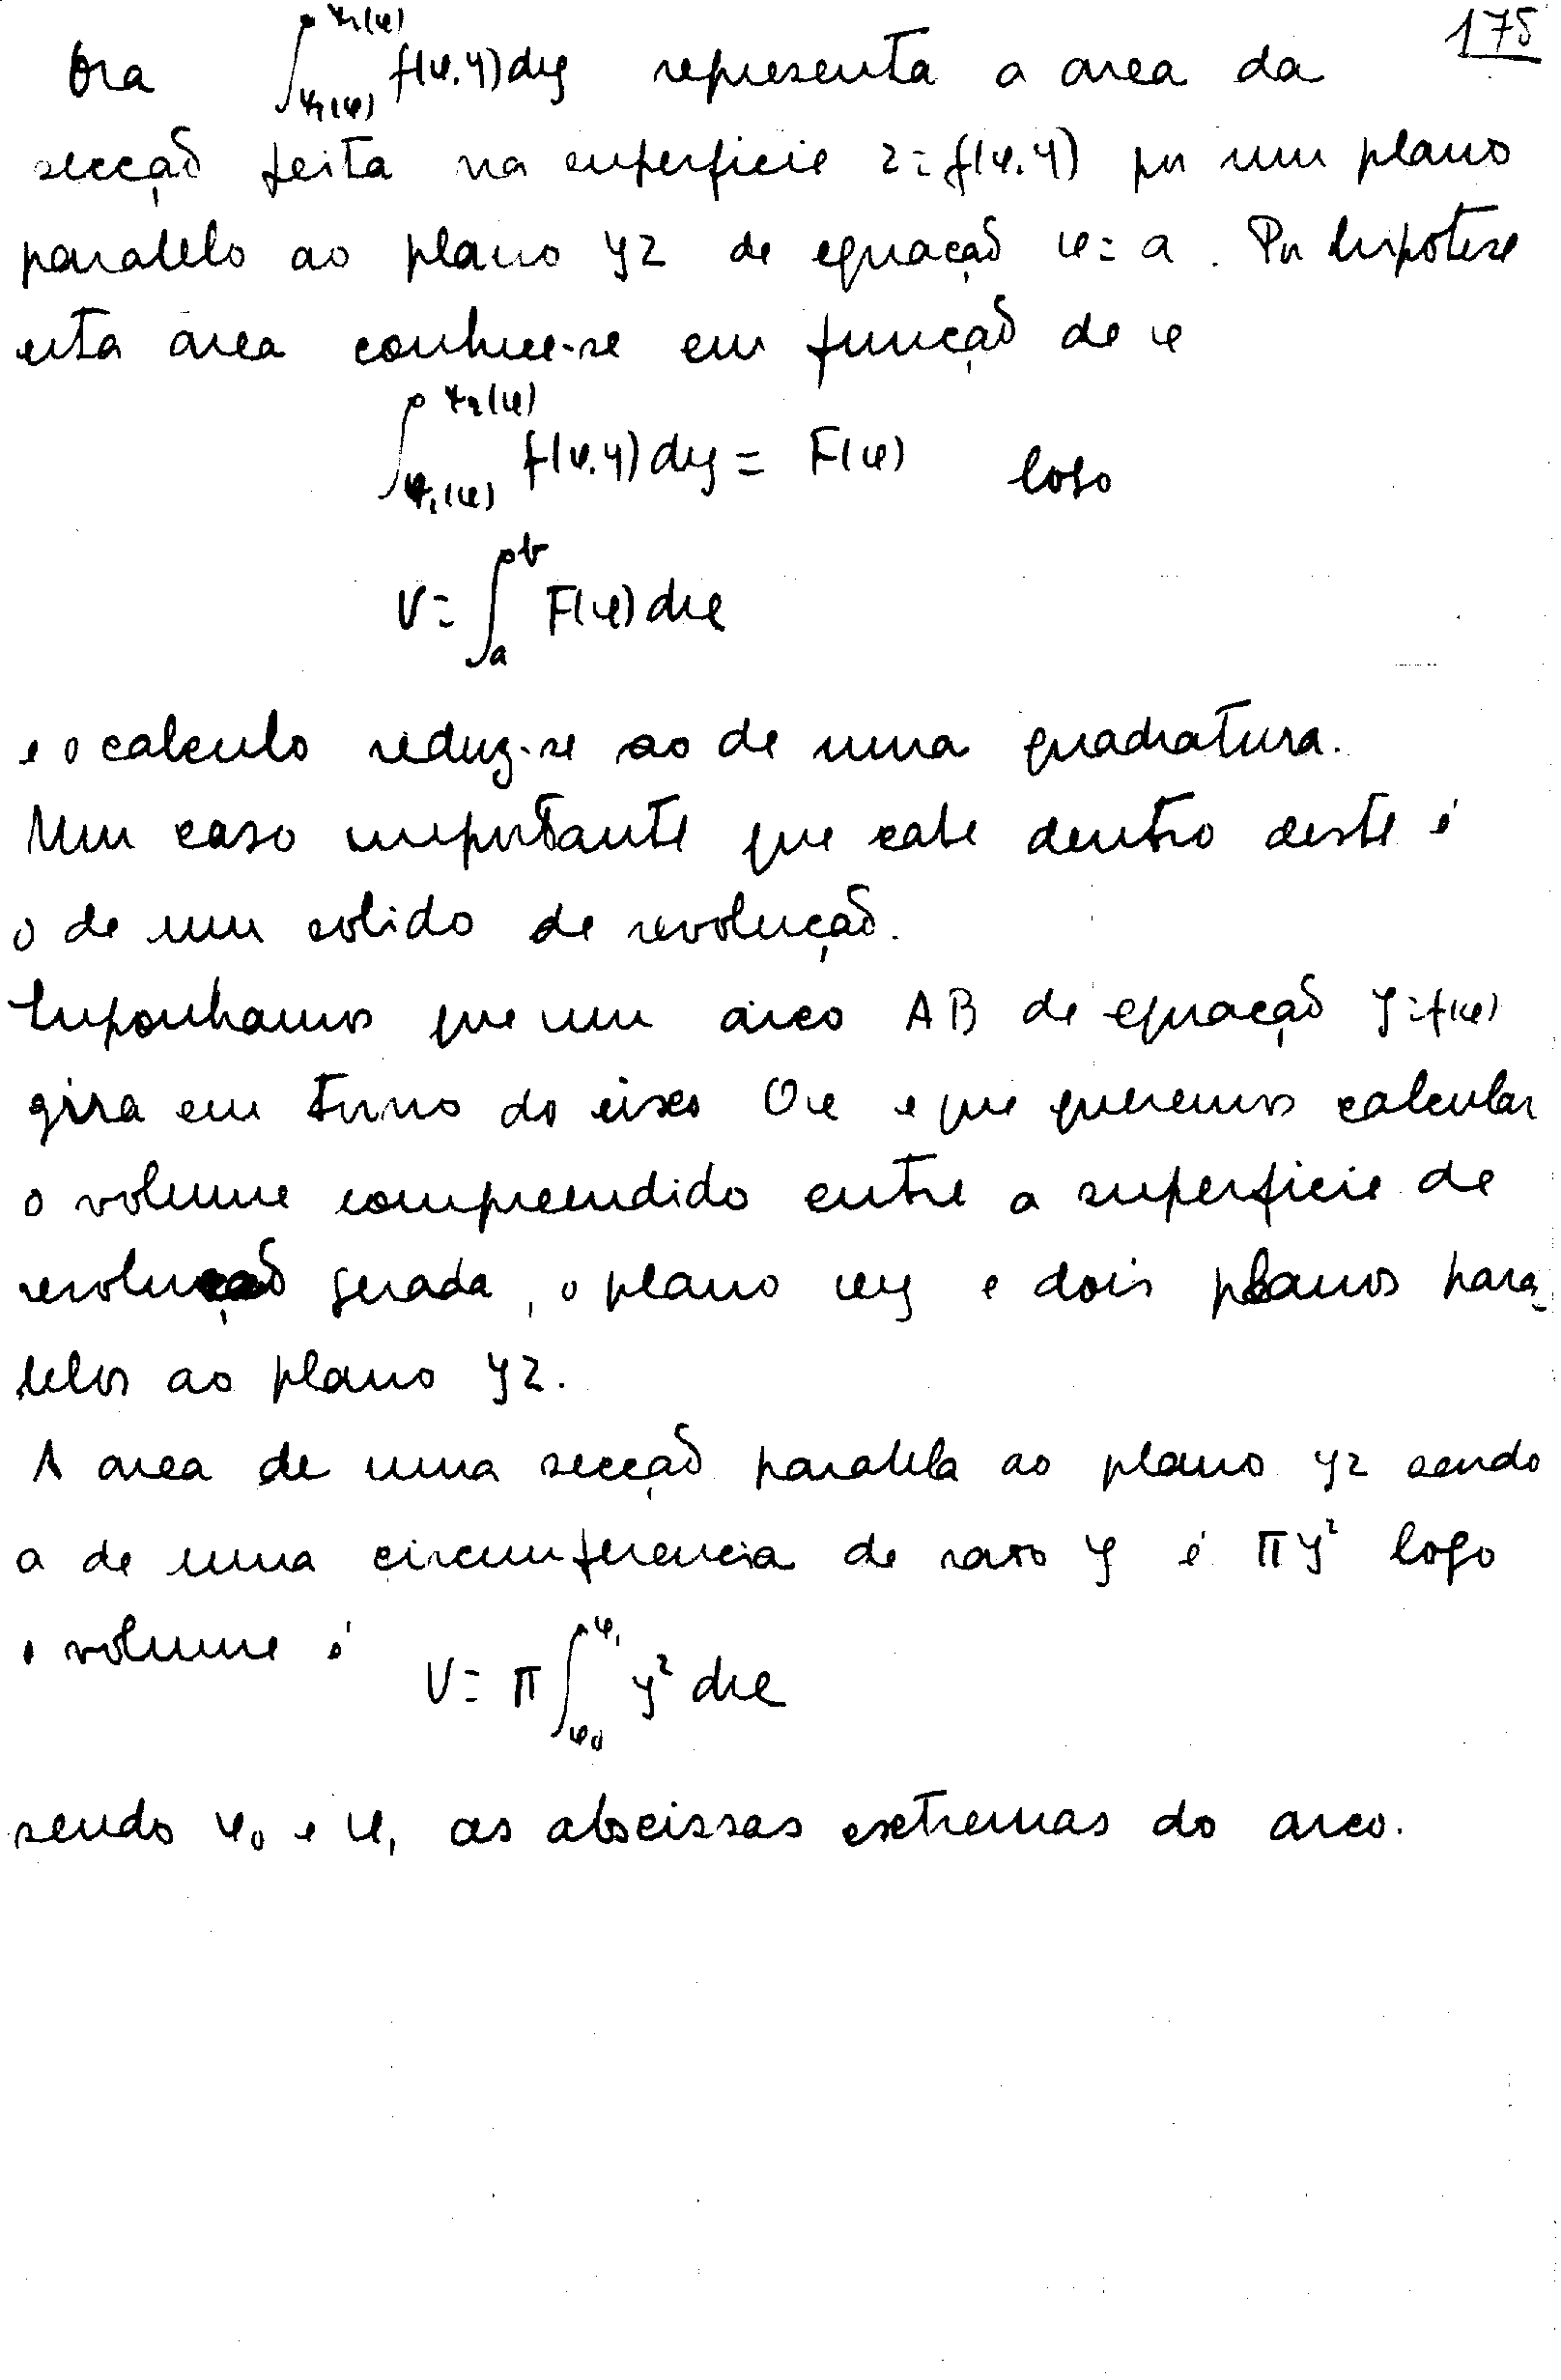 175
Ora ∫_{ψ₁(x)}^{ψ₂(x)} f(x,y)dy representa a area da
secção feita na superficie z=f(x,y) por um plano
paralelo ao plano yz de equação x=a. Por hipotese
esta area conhece-se em função de x
∫_{ψ₁(x)}^{ψ₂(x)} f(x,y)dy = F(x) logo
V=∫_a^b F(x)dx
e o calculo reduz-se ao de uma quadratura.
Um caso importante que cabe dentro deste é
o de um solido de revolução.
Suponhamos que um arco AB de equação y=f(x)
gira em torno do eixo Ox e que queremos calcular
o volume compreendido entre a superficie de
revolução gerada, o plano xy e dois planos para-
lelos ao plano yz.
A area de uma secção paralela ao plano yz sendo
a de uma circunferencia de raio y é πy² logo
o volume é V=π∫_{x₀}^{x₁} y² dx
sendo x₀ e x₁ as abscissas extremas do arco.